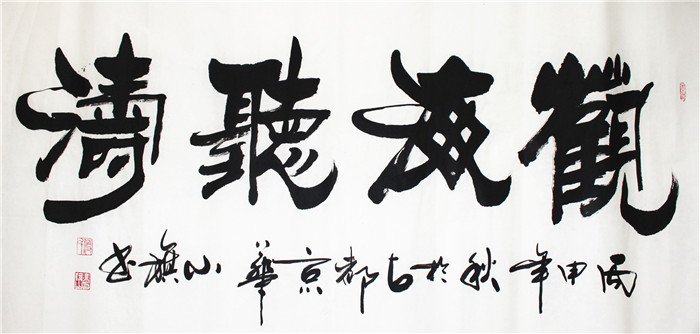 觀海聽濤
丙申年秋於古都京華小旗書